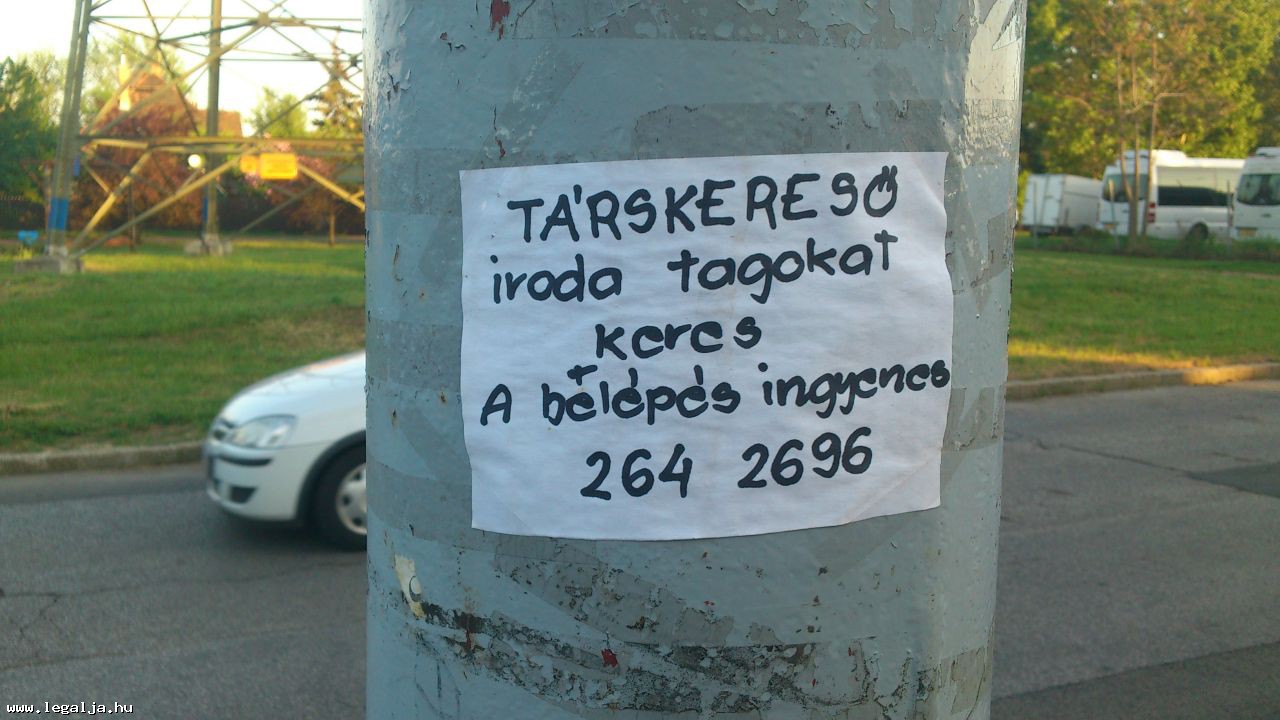 TÁRSKERESŐ
iroda tagokat
keres
A belépés ingyenes
264 2696
www.legalja.hu